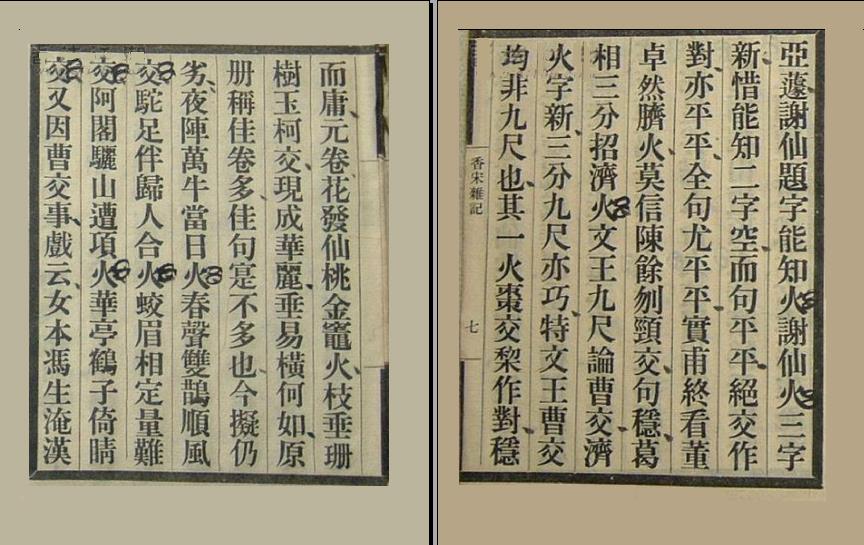 亞蘧謝仙題字能知火謝仙火三字
新惜能知二字空而句平平絕交作
對亦平平全句尤平平實甫終看董
卓然臍火莫信陳餘刎頸交句穩葛
相三分招濟火文王九尺論曹交濟
火字新三分九尺亦巧特文王曹交
均非九尺也其一火棗交棃作對穩
香宋雜記
七
而庸元卷花發仙桃金竈火枝垂珊
樹玉柯交現成華麗垂易橫何如原
册稱佳卷多佳句寔不多也今擬仍
劣夜陣萬牛當日火春聲雙鵲順風
交駝足伴歸人合火蛟眉相定量難
交阿閣驪山遭項火華亭鶴子倚晴
交又因曹交事戲云女本馮生淹漢